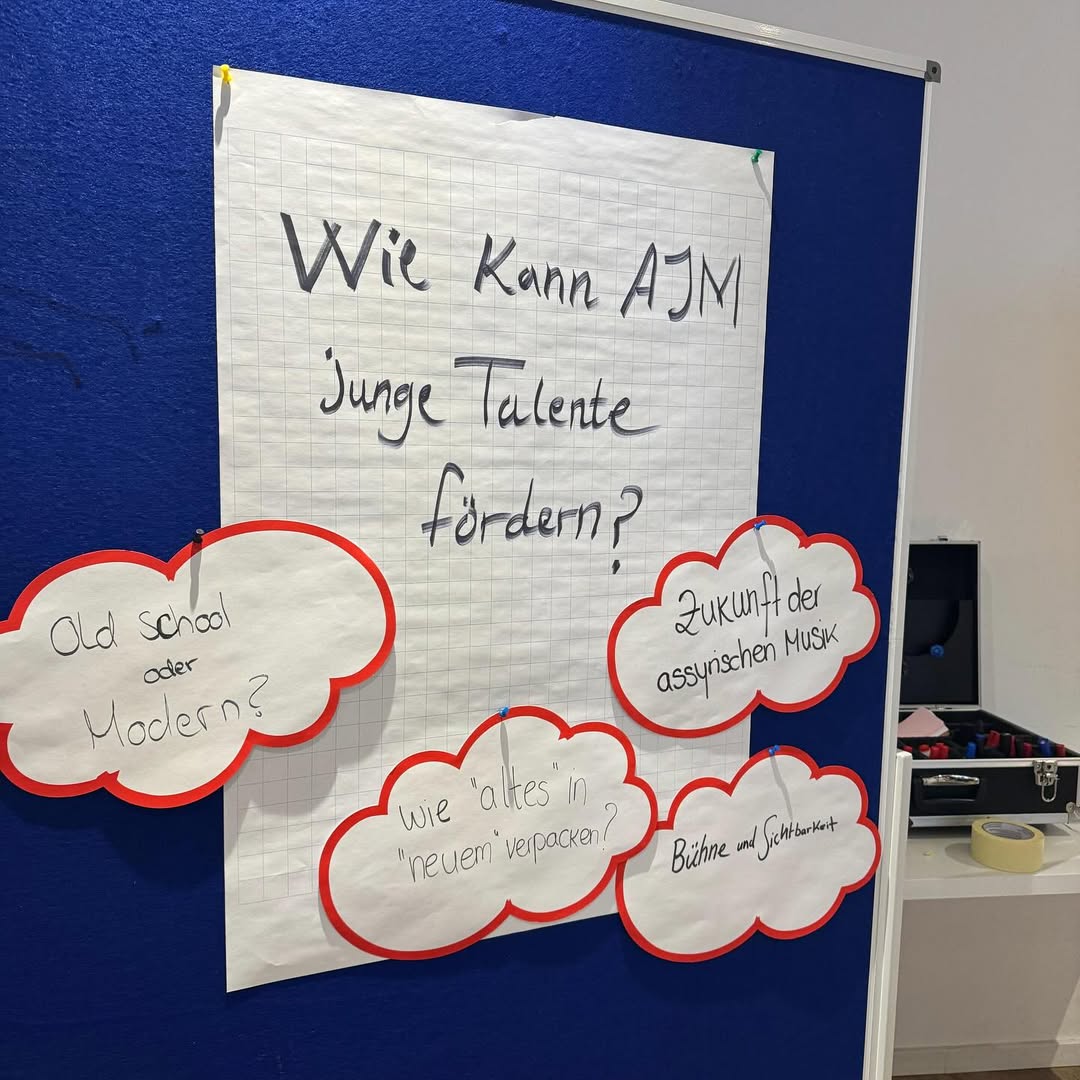 Wie Kann AJM
junge Talente
fördern?
Old school
oder
Modern?
Zukunft der
assyrischen Musik
wie "altes" in
"neuem" verpacken?
Bühne und Sichtbarkeit